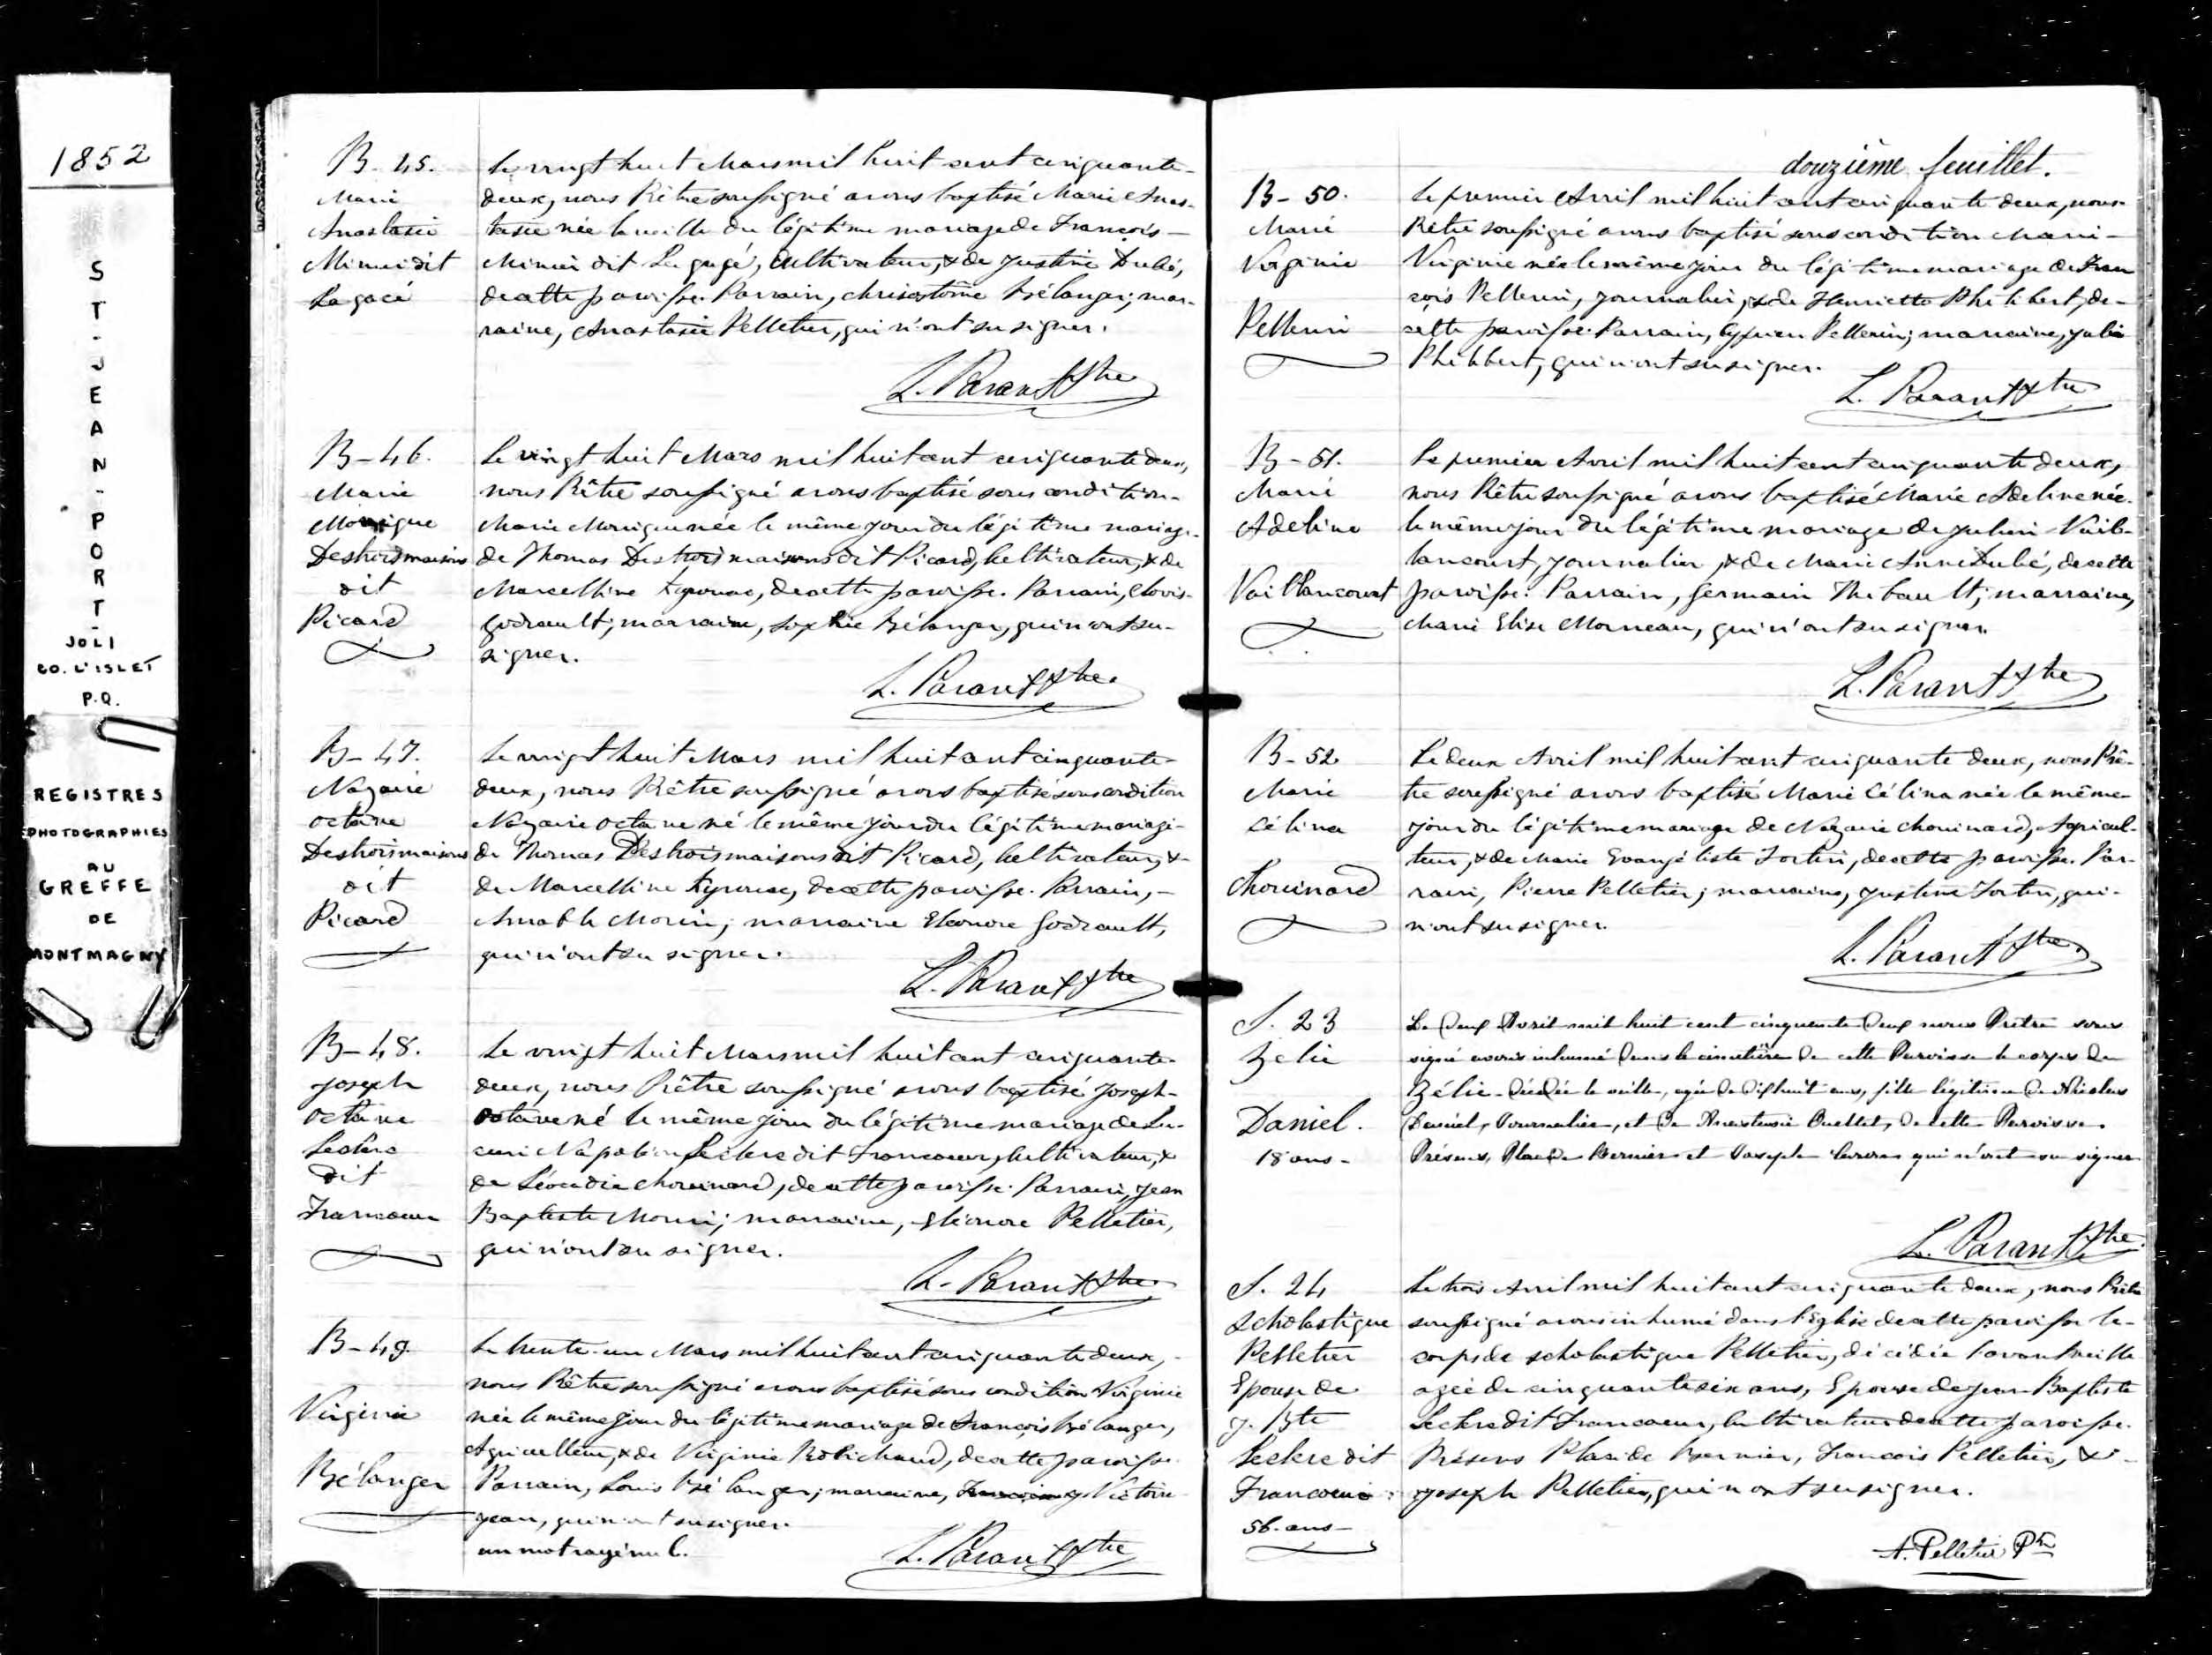 1852
ST-JEAN-PORT-
JOLI
CO. L'ISLET
P.Q.
REGISTRES
PHOTOGRAPHIES
AU
GREFFE
DE
MONTMAGNY
B-45.
Marie
Anastasie
Mimier dit
Lagacé
Le vingt huit Mars mil huit cent cinquante-
deux, nous Prêtre soussigné avons baptisé Marie Anas-
tasie née la veille du légitime mariage de François-
Mimier dit Lagacé, Cultivateur, & de Justine Dubé,
de cette paroisse. Parrain, Chrisostôme Bélanger; mar-
raine, Anastasie Pelletier, qui n'ont su signer.
L. Parant Ptre
B-46.
Marie
Monique
Destroismaisons
dit
Picard
Le vingt huit Mars mil huit cent cinquante deux,
nous Prêtre soussigné avons baptisé sous condition-
Marie Monique née le même jour du légitime mariage-
de Thomas Destroismaisons dit Picard, Cultivateur, & de
Marcelline de cette paroisse. Parrain, Clovis-
Godrault; marraine, Sophie Bélanger, qui n'ont su-
signer.
L. Parant Ptre.
B-47.
Nazaire
Octave
Destroismaisons
dit
Picard
Le vingt huit Mars mil huit cent cinquante-
deux, nous Prêtre soussigné avons baptisé sous condition
Nazaire Octave né le même jour du légitime mariage-
de Thomas Destroismaisons dit Picard, Cultivateur, &-
de Marcelline de cette paroisse. Parrain,-
Amable Morin; marraine Eléonore Godrault,
qui n'ont su signer.
L. Parant Ptre
B-48.
Joseph
Octave
Leclerc
dit
Francoeur
Le vingt huit Mars mil huit cent cinquante-
deux, nous Prêtre soussigné avons baptisé Joseph-
Octave né le même jour du légitime mariage de Lu-
cien Napoléon Leclerc dit Francoeur, Cultivateur, &
de Léocadie Chouinard, de cette paroisse. Parrain, Jean
Baptiste Morin; marraine, Eléonore Pelletier,
qui n'ont su signer.
L. Parant Ptre.
B-49.
Virginie
Bélanger
Le trente-un Mars mil huit cent cinquante deux,-
nous Prêtre soussigné avons baptisé sous condition Virginie
née le même jour du légitime mariage de François Bélanger,
Agriculteur, & de Virginie Robichaud, de cette paroisse.
Parrain, Louis Bélanger; marraine, Victoire
Jean, qui n'ont su signer.
un mot rayé nul.
L. Parant Ptre
douzième feuillet.
B-50.
Marie
Virginie
Pellerin
Le premier Avril mil huit cent cinquante deux, nous-
Prêtre soussigné avons baptisé sous condition Marie-
Virginie née le même jour du légitime mariage de Fran
çois Pellerin, Journalier, & de Henriette Philibert, de-
cette paroisse. Parrain, Cyprien Pellerin; marraine, Julie
Philibert, qui n'ont su signer.
L. Parant Ptre
B-51.
Marie
Adeline
Vaillancourt
Le premier Avril mil huit cent cinquante deux,
nous Prêtre soussigné avons baptisé Marie Adeline née-
le même jour du légitime mariage de Julien Vail-
lancourt, Journalier, & de Marie Anne Dubé, de cette
paroisse. Parrain, Germain Thibault; marraine,
Marie Elise Morneau, qui n'ont su signer.
L. Parant Ptre
B-52
Marie
Célina
Chouinard
Le deux Avril mil huit cent cinquante deux, nous Prê-
tre soussigné avons baptisé Marie Célina née le même-
jour du légitime mariage de Nazaire Chouinard, Agricul-
teur, & de Marie Evangéliste Fortin, de cette paroisse. Par-
rain, Pierre Pelletier; marraine, Justine Fortin, qui-
n'ont su signer.
L. Parant Ptre.
S. 23
Zelie
Daniel.
18 ans-
Le deux Avril mil huit cent cinquante deux nous Prêtre sous
signé avons inhumé dans le cimetière de cette Paroisse le corps de
Zélie-décédée la veille, agée de dix huit ans, fille légitime de Nicolas
Daniel, Journalier, et de Anastasie Ouellet, de cette Paroisse.
Présens, Placide Bernier et Joseph qui n'ont su signer
L. Parant Ptre.
S. 24
Scholastique
Pelletier
Epouse de
J. Bte
Leclerc dit
Francoeur.
56. ans-
Le trois Avril mil huit cent cinquante deux, nous Prêtre
soussigné avons inhumé dans l'Eglise de cette paroisse le-
corps de Scholastique Pelletier, décédée l'avant veille
agée de cinquante six ans, Epouse de Jean-Baptiste
Leclerc dit Francoeur, Cultivateur de cette paroisse.
Présens Placide Bernier, François Pelletier, &-
Joseph Pelletier, qui n'ont su signer.
A. Pelletier Ptr